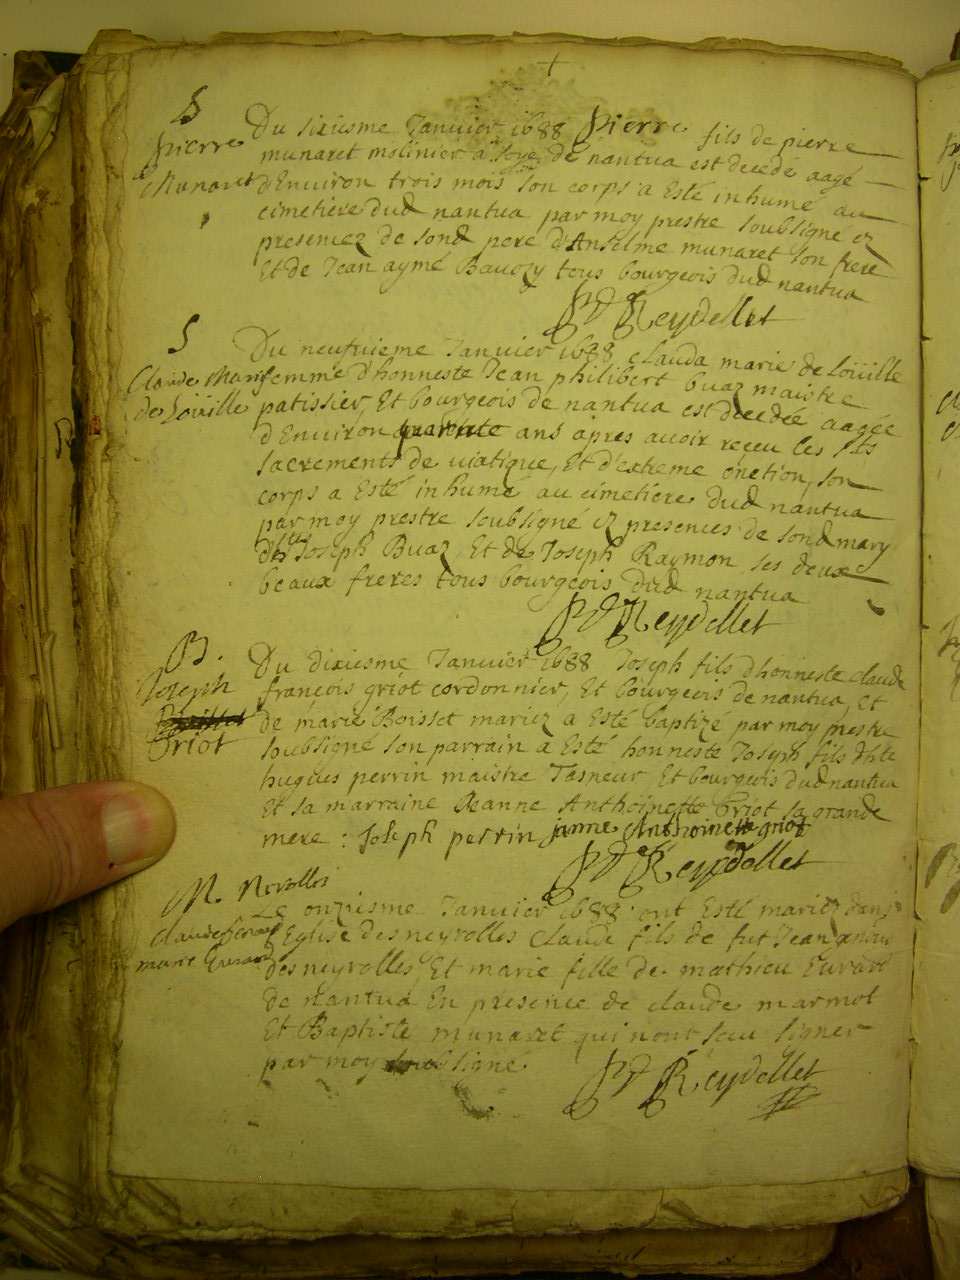 S
pierre
Munaret
Du sixiesme Janvier 1688 Pierre fils de pierre
munaret molinier a soye de nantua est decedé aagé
d'Environ trois mois son corps a Esté inhumé au
cimetiere dud nantua par moy prestre soubsigné ez
presencez de sond pere d'Anselme munaret son frere
Et de Jean aymé Bavozy tous bourgeois dud nantua
Reydellet
S
Claude Marie
de Loüille
Du neufvieme Janvier 1688 clauda marie de Loüille
femme d'honneste Jean philibert buaz maistre
patissier, Et bourgeois de nantua est decedée aagée
d'Environ quarante ans apres avoir receu les sts
sacrements de viatique, Et d'extreme onction, son
corps a Esté inhumé au cimetiere dud nantua
par moy prestre soubsigné ez presences de sond mary
Joseph Buaz, Et de Joseph Raymon ses deux
beaux freres tous bourgeois dud nantua
Reydellet
B.
Joseph
Griot
Du dixiesme Janvier 1688 Joseph fils d'honneste claude
françois griot cordonnier, Et bourgeois de nantua, Et
de marie Boisset mariez a Esté baptizé par moy prestre
soubsigné son parrain a Esté honneste Joseph fils d'hte
hugues perrin maistre Tasneur Et bourgeois dud nantua
Et sa marraine Jeanne Anthoinette Griot sa grande
mere : Joseph perrin janne Anthoinette griot
Reydellet
M. Nerolles
Claude
marie Evrard
Le onziesme Janvier 1688 ont Esté mariez dans
l'Eglise des neyrolles Claude fils de fut Jean
des neyrolles Et marie fille de mathieu Evrard
de nantua En presence de claude marmot
Et Baptiste munaret qui n'ont sceu signer
par moy soubsigné
Reydellet